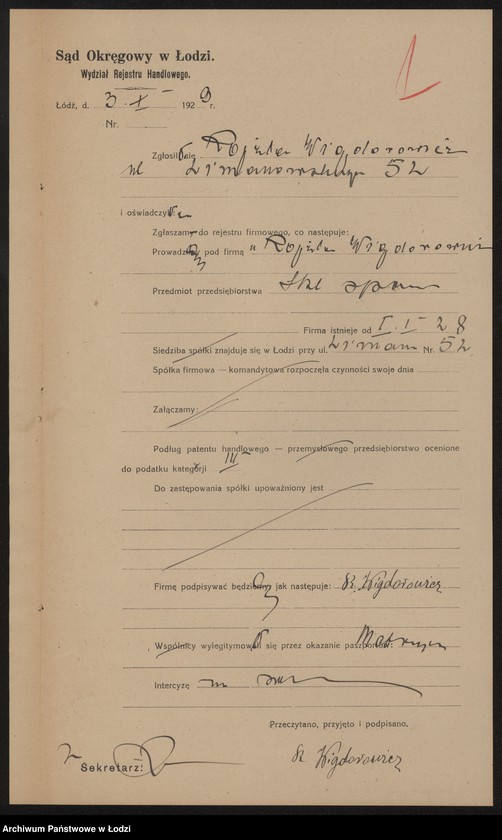 Sąd Okręgowy w Łodzi.
Wydział Rejestru Handlowego.
Łódź, d. 3 X 1929 r.
Nr.
Zgłosiła się Rojzla Wigdorowicz
ul Limanowskiego 52
i oświadczyła
Zgłaszam do rejestru firmowego, co następuje:
Prowadzę pod firmą „Rojzla Wigdorowicz
Przedmiot przedsiębiorstwa Skl
Firma istnieje od I. I 28
Siedziba spółki znajduje się w Łodzi przy ul. Liman Nr. 52
Spółka firmowa — komandytowa rozpoczęła czynności swoje dnia
Załączamy:
Podług patentu handlowego — przemysłowego przedsiębiorstwo ocenione
do podatku kategorji III
Do zastępowania spółki upoważniony jest
Firmę podpisywać będziemy jak następuje: R. Wigdorowicz
Wspólnicy wylegitymowali się przez okazanie paszportów:
Intercyzę
Przeczytano, przyjęto i podpisano.
R. Wigdorowicz
Sekretarz:
Archiwum Państwowe w Łodzi